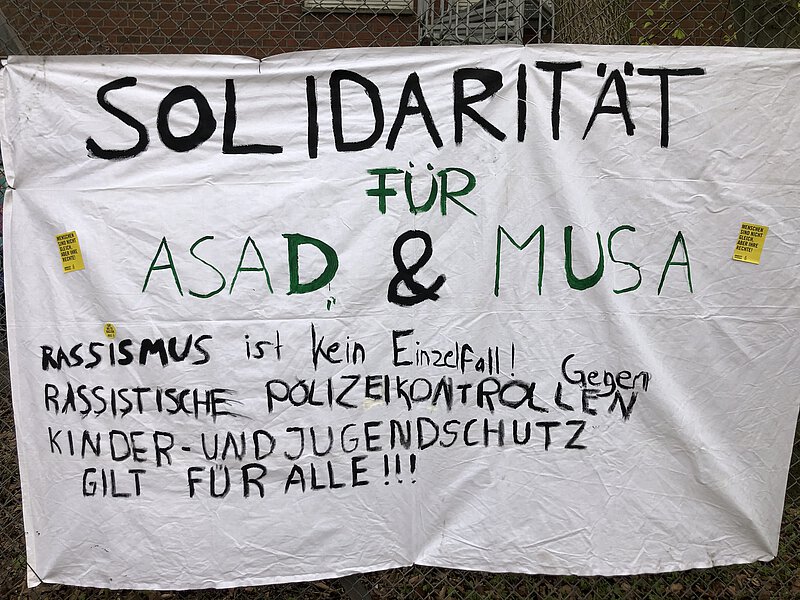 SOLIDARITÄT
FÜR
ASAD & MUSA
MENSCHEN
SIND NICHT
GLEICH,
ABER IHRE
RECHTE!
MENSCHEN
SIND NICHT
GLEICH,
ABER IHRE
RECHTE!
RASSISMUS ist kein Einzelfall!
Gegen
RASSISTISCHE POLIZEIKONTROLLEN
KINDER-UND JUGENDSCHUTZ
GILT FÜR ALLE!!!